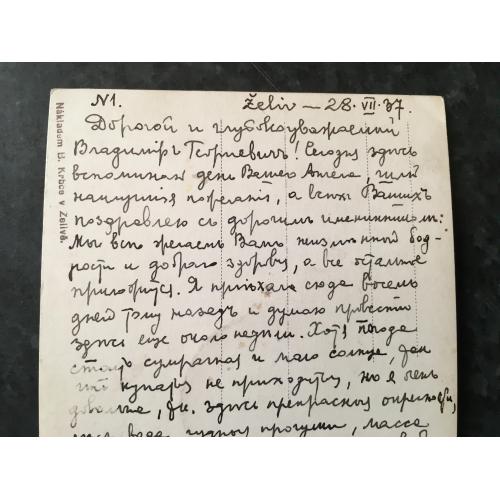 N1. Želiv — 28. VII. 37.
Дорогой и глубокоуважаемый
Владимiръ Георгiевичъ! Сегодня здѣсь
вспоминаю день Вашего Ангела, шлю
наилучшiя пожеланiя, а всѣхъ Вашихъ
поздравляю съ дорогимъ именинникомъ:
Мы всѣ желаемъ Вамъ жизненной бод-
рости и добраго здоровья, а все остальное
приложится. Я прiѣхала сюда восемь
дней тому назадъ и думаю провести
здѣсь еще около недѣли. Хотя погода
стоитъ сумрачная и мало солнца,
купаться не приходится, но я очень
довольна, здѣсь прекрасныя окрестности,
вода, чудныя прогулки, масса
Nákladem B. Krbce v Želivě.